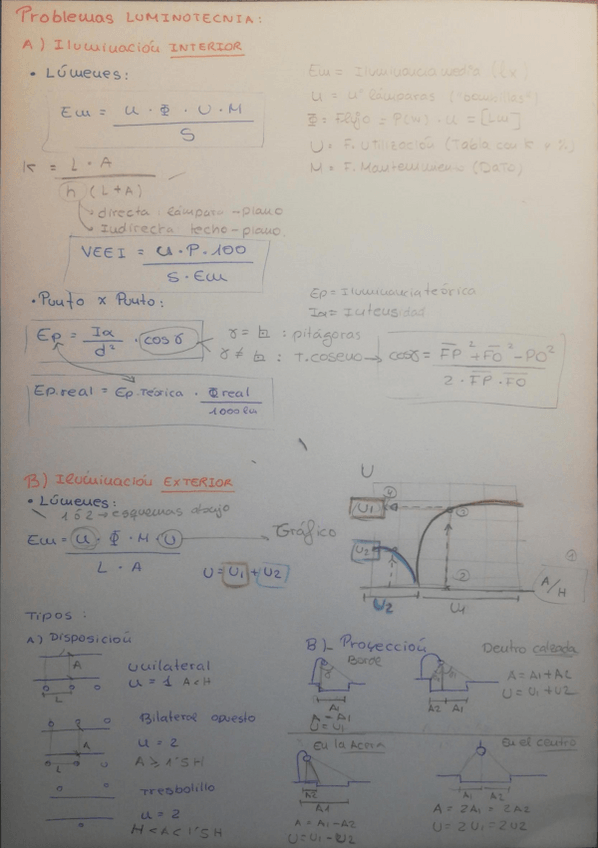 Problemas LUMINOTECNIA:
A) Iluminación INTERIOR
• Lúmenes:
Em = u · Φ · U · M / S
Em = Iluminancia media (lx)
u = nº lámparas ("bombillas")
Φ = Flujo = P(W) · u = [Lm]
U = F. Utilización (Tabla con K y
M = F. Mantenimiento (Dato)
K = L · A / h (L+A)
directa: lámpara-plano
Indirecta techo-plano.
VEEI = u · P · 100 / S · Em
• Punto x Punto:
Ep = Iluminancia teórica
Iα = Intensidad
Ep = Iα / d² · cos γ
γ = : pitágoras
γ ≠ : T. coseno → cosγ = FP² + FO² - PO² / 2 · FP · FO
Ep.real = Ep.Teórica · Φreal / 1000 lm
B) Iluminación EXTERIOR
• Lúmenes:
1 ó 2 → esquemas abajo
Em = u · Φ · M · U / L · A
Gráfico
U = U1 + U2
U
U1
④
③
U2
②
①
A/H
U2
U1
Tipos:
A) Disposición
A
L
Unilateral
u = 1 A<H
A
L
Bilateral opuesto
u = 2
A ≥ 1'5H
Tresbolillo
u = 2
H<A<1'5H
B)_ Proyección
Borde
A1
A = A1
U = U1
Dentro calzada
A2 A1
A = A1 + A2
U = U1 + U2
En la Acera
A2
A1
A = A1 - A2
U = U1 - U2
En el centro
A1 A2
A = 2A1 = 2A2
U = 2U1 = 2U2